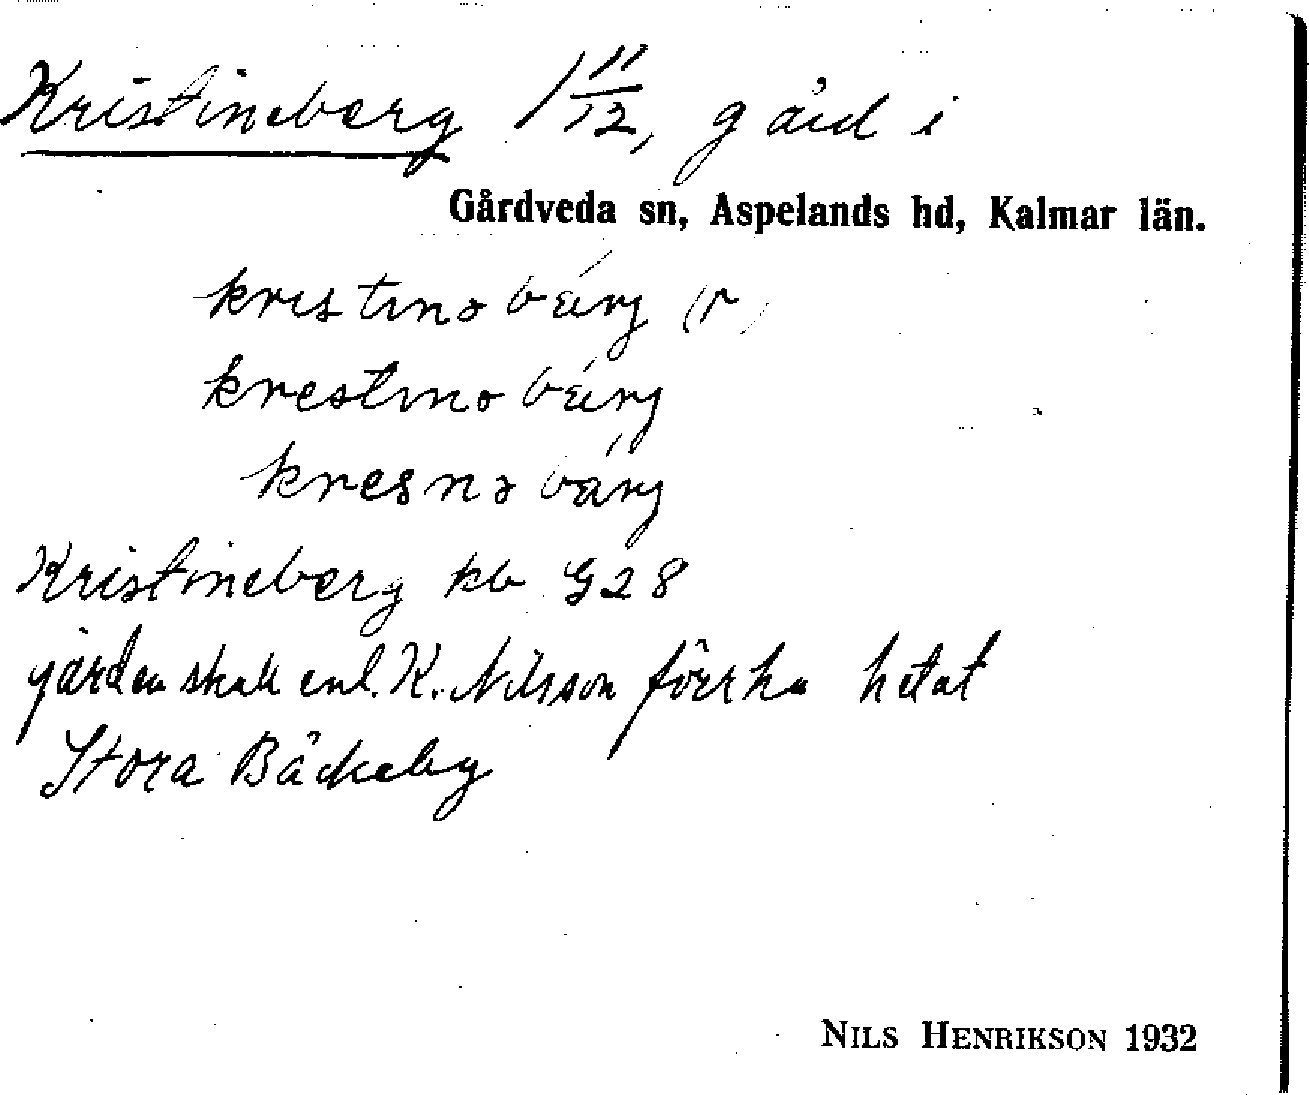 Kristineberg 1 11/12, gård i
Gårdveda sn, Aspelands hd, Kalmar län.
kristinəbä́rj (r)
krestinəbä́rj
kresnəbä́rj
Kristineberg kb G28
gården skall enl. K. Nilsson förr ha hetat
Stora Bäckeby
NILS HENRIKSON 1932